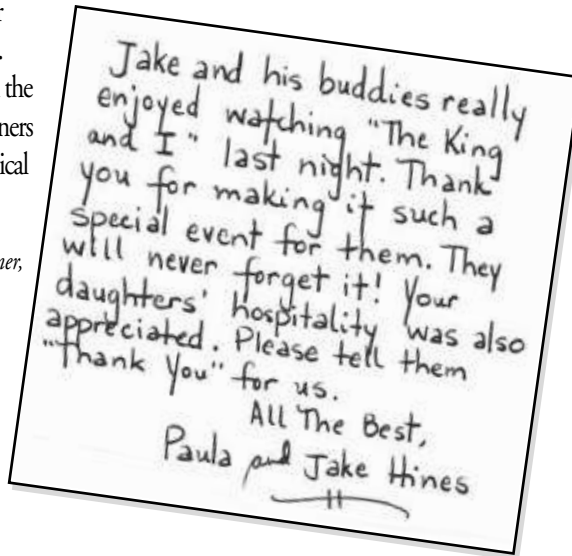 r
.
the
ners
ical
ner,
Jake and his buddies really
enjoyed watching "The King
and I" last night. Thank
you for making it such a
special event for them. They
will never forget it! Your
daughters' hospitality was also
appreciated. Please tell them
"Thank You" for us.
All The Best,
Paula and Jake Hines